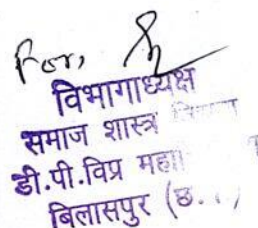 For,
विभागाध्यक्ष
समाज शास्त्र
डी.पी.विप्र महा
बिलासपुर (छ. . )